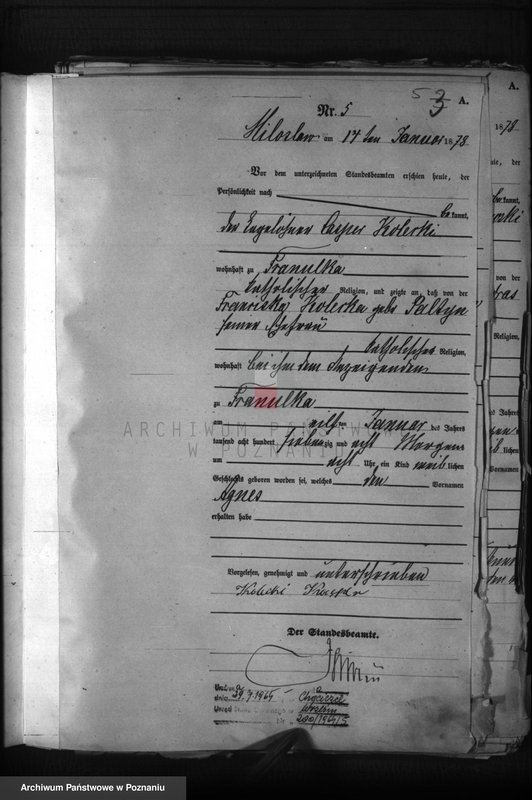 Nr. 5
5 3 A.
Miloslaw am 14 ten Januar 1878
Vor dem unterzeichneten Standesbeamten erschien heute, der
Persönlichkeit nach
be kannt,
der Tagelöhner Casper Kolecki
wohnhaft zu Franulka
katholischer Religion, und zeigte an, daß von der
Franciska Kolecka geb.
seiner Ehefrau
katholischer Religion,
wohnhaft bei ihm dem Anzeigenden
zu Franulka
am eilf ten Januar des Jahrs
tausend acht hundert sieben zig und acht Morgens
um acht Uhr ein Kind weib lichen
Geschlechts geboren worden sei, welches den Vornamen
Agnes
erhalten habe
Vorgelesen, genehmigt und unterschrieben
Kolecki
Der Standesbeamte.
A.
1878
ARCHIWUM PAŃSTWOWE
W POZNANIU
Religion,
lichen
Vornamen
Archiwum Państwowe w Poznaniu